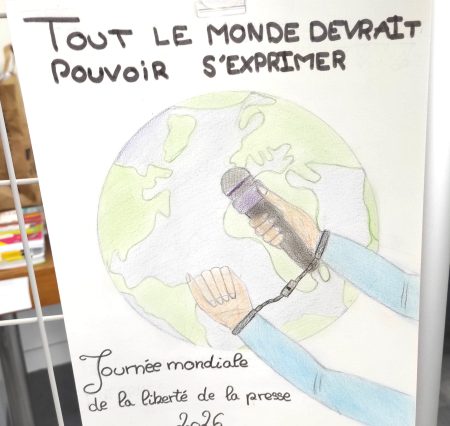 TOUT LE MONDE DEVRAIT
POUVOIR S'EXPRIMER
Journée mondiale
de la liberté de la presse
2026